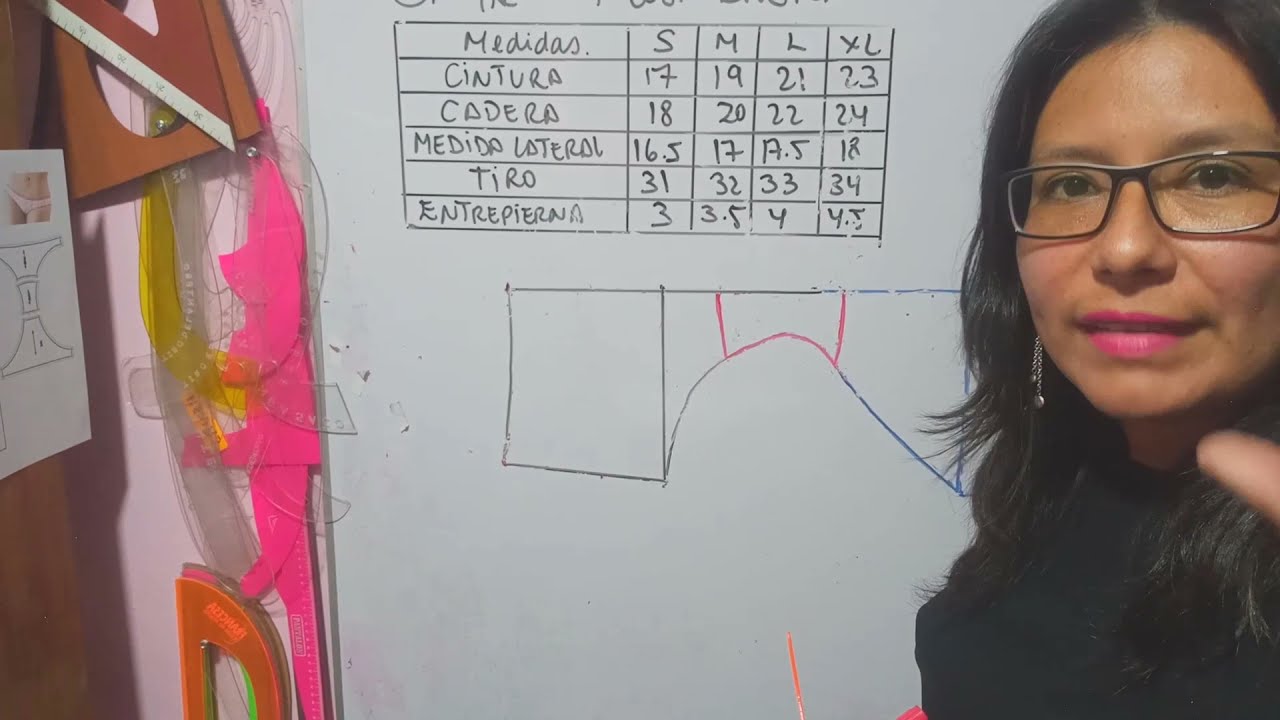 Medidas. S M L XL
CINTURA 17 19 21 23
CADERA 18 20 22 24
MEDIDA LATERAL 16.5 17 17.5 18
TIRO 31 32 33 34
ENTREPIERNA 3 3.5 4 4.5